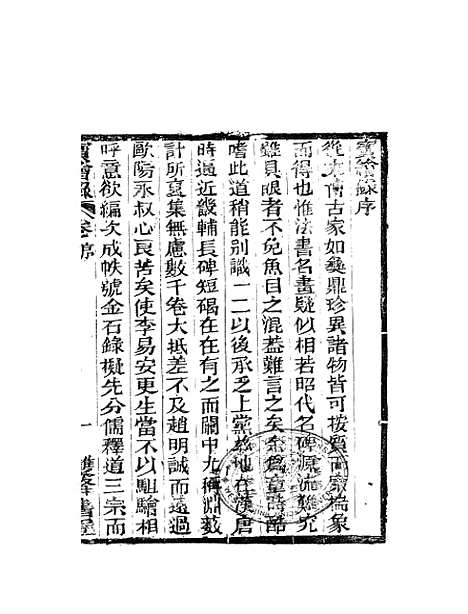 寶繪錄序
從來博古家如彝鼎珍異諸物皆可按質而索揣象
而得也惟法書名畫疑似相若昭代名碑源流難究
雖具眼者不免魚目之混蓋難言之矣余為童時酷
嗜此道稍能別識一二以後承乏上黨茲地在漢唐
時逼近畿輔長碑短碣在在有之而關中尤稱淵藪
計所裒集無慮數千卷大抵差不及趙明誠而遠過
歐陽永叔心良苦矣使李易安更生當不以駔驗相
呼意欲編次成帙號金石錄擬先分儒釋道三宗而
寶繪錄 卷序 一